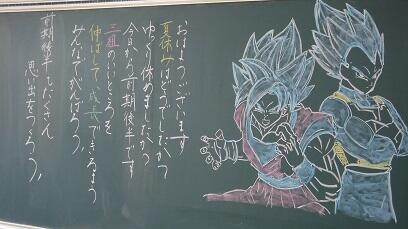 おはようございます
夏休みはどうでしたか？
ゆっくり休めましたか？
今日から前期後半です
三組のいいところを
伸ばして、成長できるよう
みんなでがんばろう！
前期後半もたくさん
思い出をつくろう！